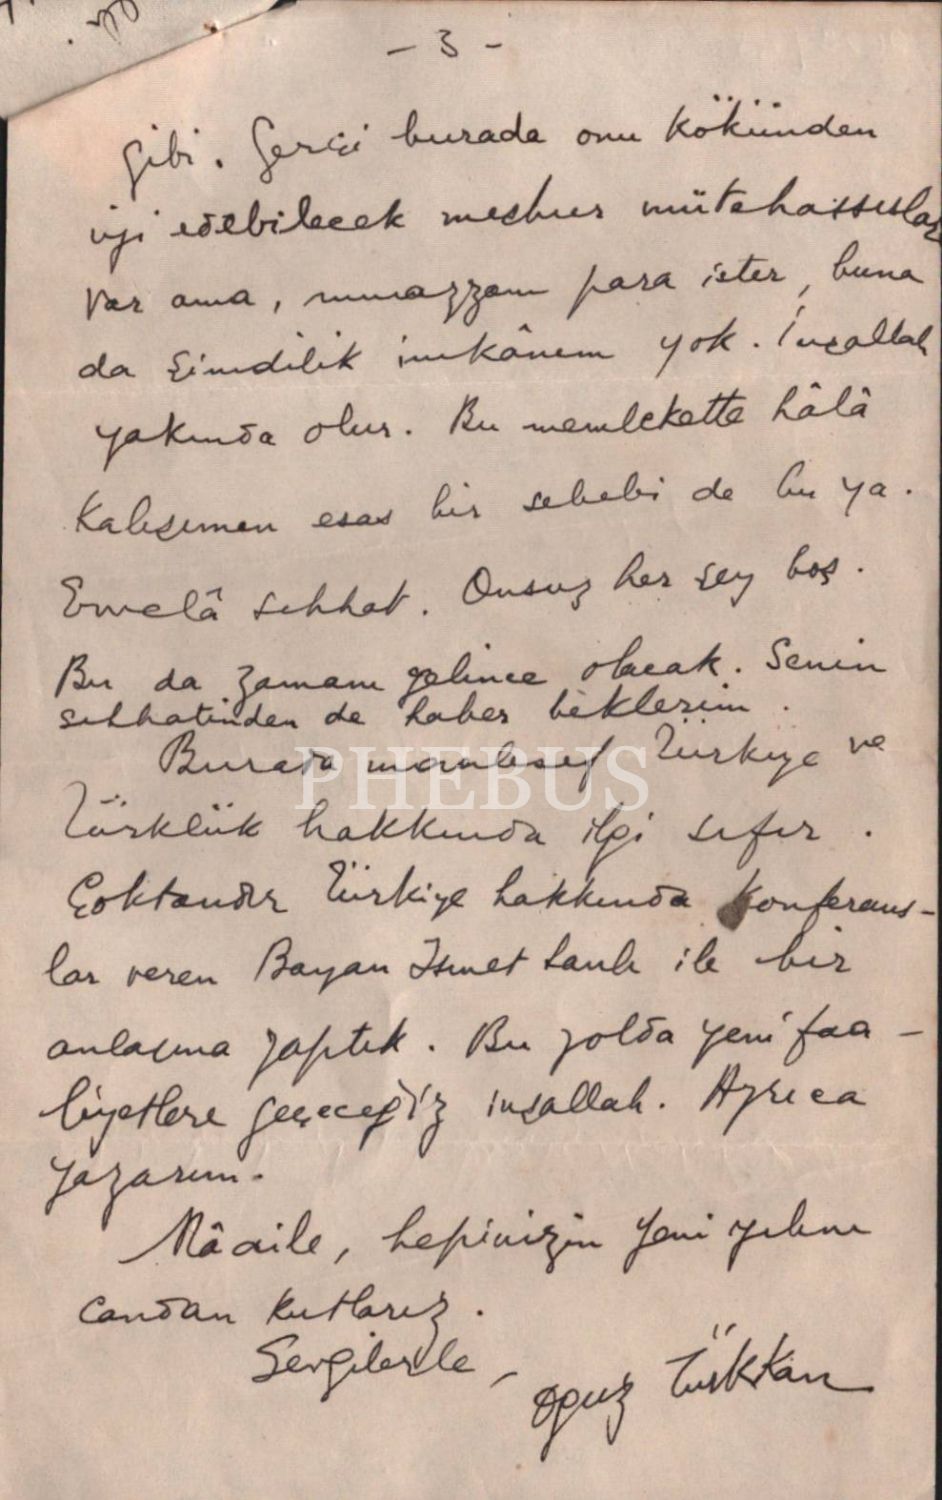 - 3 -
gibi. Gerçi burada onu kökünden
iyi edebilecek meşhur mütehassıslar
var ama, muazzam para ister, buna
da şimdilik imkânım yok. İnşallah
yakında olur. Bu memlekette hâlâ
kalışımın esas bir sebebi de bu ya.
Evvelâ sıhhat. Onsuz her şey boş.
Bu da zamanı gelince olacak. Senin
sıhhatinden de haber beklerim.
Burada maalesef Türkiye ve
Türklük hakkında ilgi sıfır.
Çoktandır Türkiye hakkında konferans-
lar veren Bayan İsmet Sanlı ile bir
anlaşma yaptık. Bu yolda yeni faa-
liyetlere geçeceğiz inşallah. Ayrıca
yazarım.
Mâaile, hepinizin yeni yılını
candan kutlarız.
Sevgilerle,
Oğuz Türkkan
PHEBUS